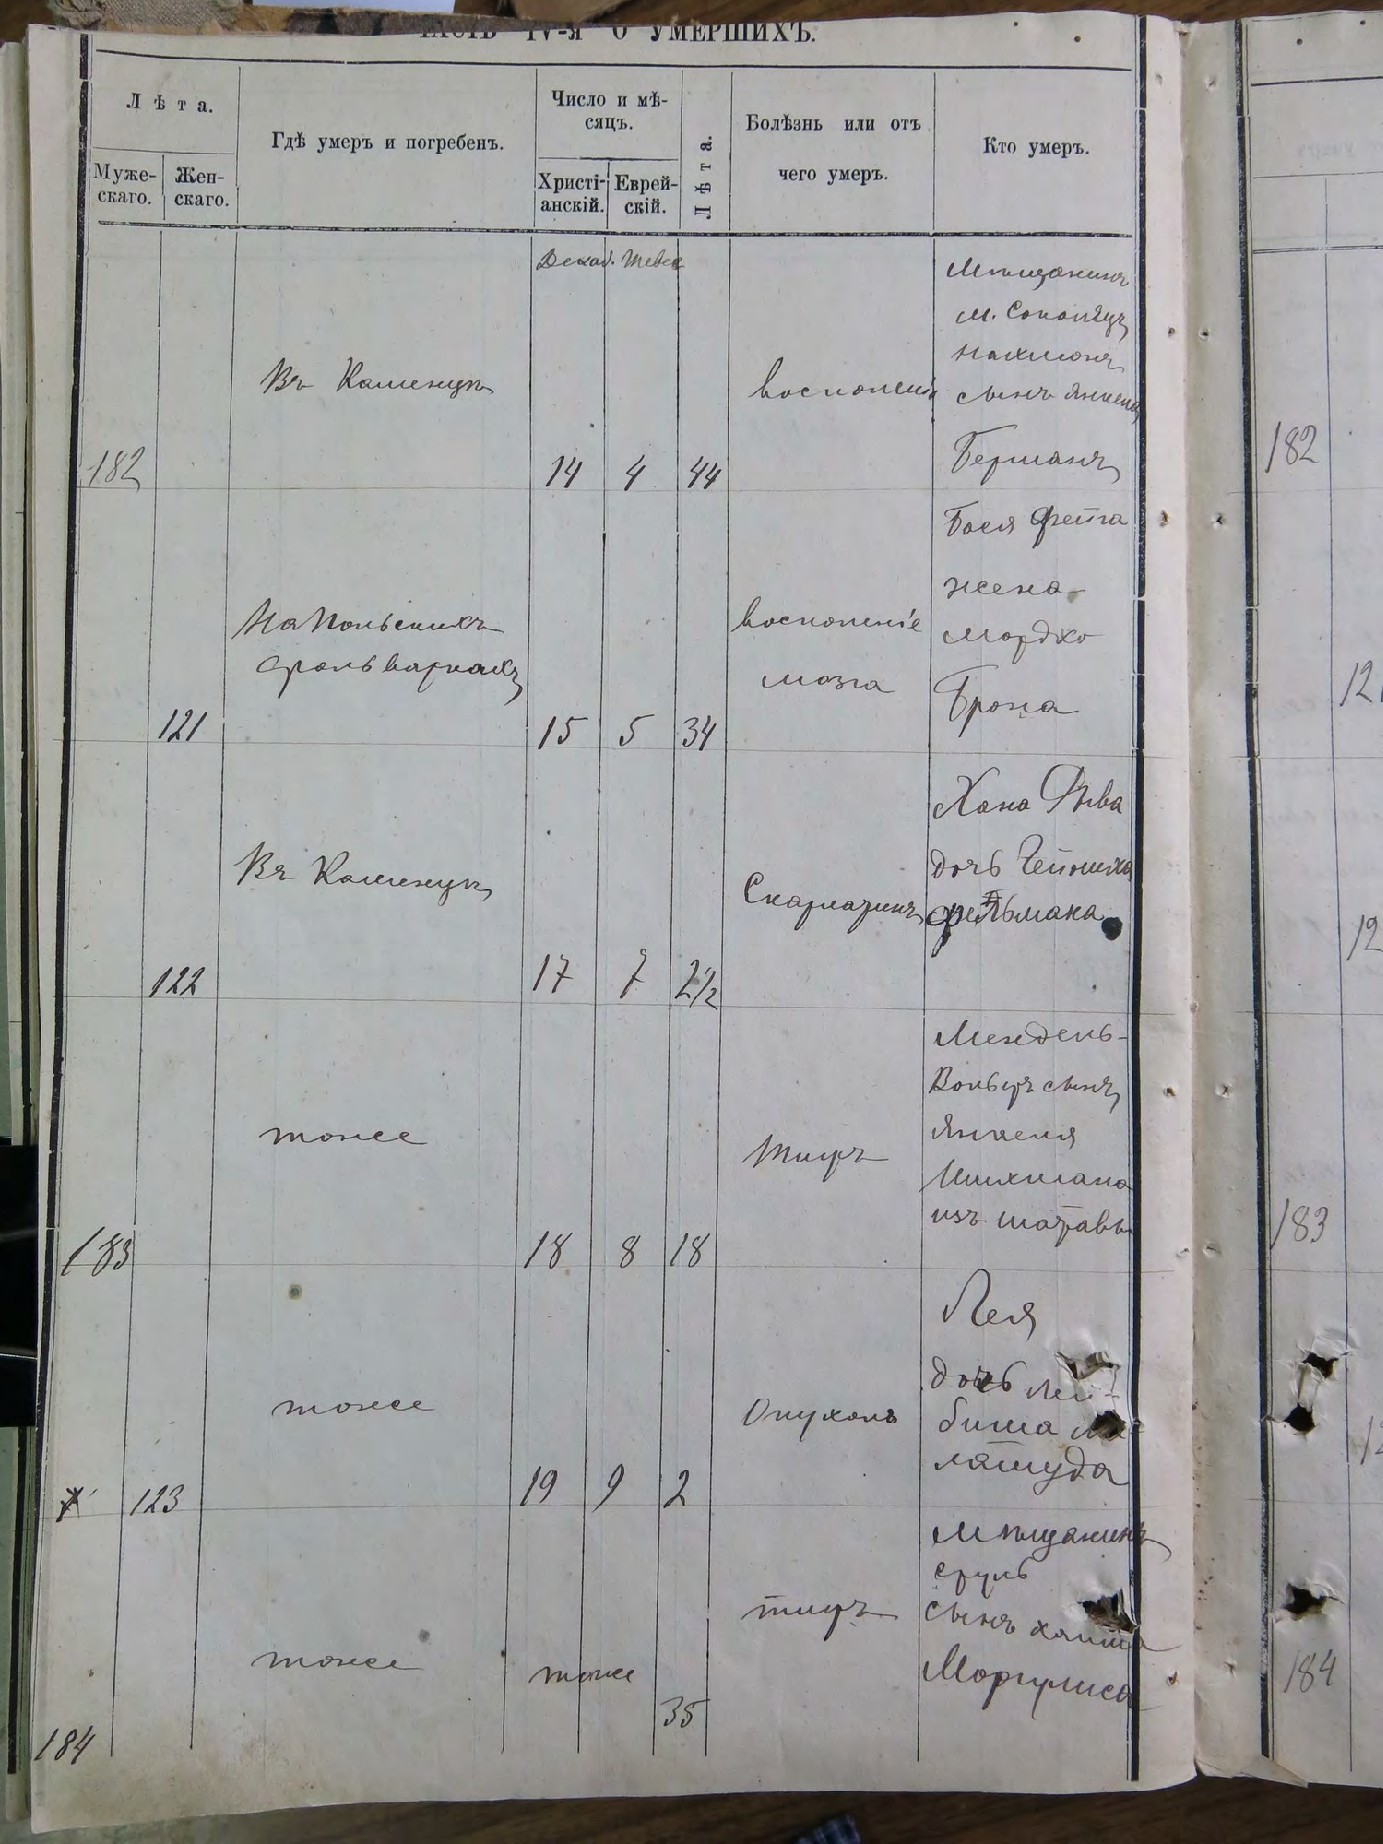 ЧАСТЬ IV-я О УМЕРШИХЪ.
Лѣта.
Мужескаго.
Женскаго.
Гдѣ умеръ и погребенъ.
Число и мѣсяцъ.
Христіанскій.
Еврейскій.
Лѣта.
Болѣзнь или отъ
чего умеръ.
Кто умеръ.
Декаб. Тевес
182
Въ Каменцѣ
14 4 44
восполеніе
Мѣщанинъ
м. Соколѣцъ
Нахманъ
сынъ Янкеля
Берманъ
182
121
На Польскихъ
фольваркахъ
15 5 34
восполеніе
мозга
Бася Фейга
жена
Мордко
Брона
12
122
Въ Каменцѣ
17 7 2½
Скарлатинъ
Хана Рыва
дочь
фельмана
12
183
тоже
18 8 18
тифъ
Мендель-
Вольфъ сынъ
Янкеля
изъ Шатавы
183
123
тоже
19 9 2
Опухоль
Лея
дочь Лей-
биша
12
184
тоже
тоже
35
тифъ
Мѣщанинъ
Сруль
сынъ Хаима
Маргулиса
184